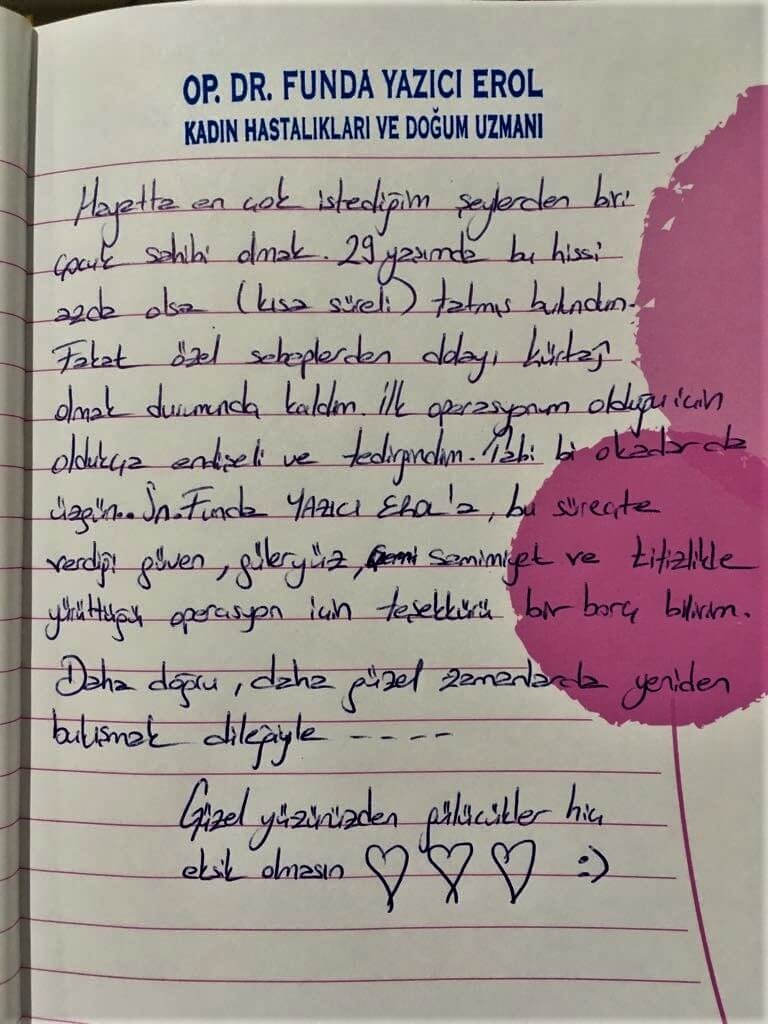 OP. DR. FUNDA YAZICI EROL
KADIN HASTALIKLARI VE DOĞUM UZMANI
Hayatta en çok istediğim şeylerden biri
çocuk sahibi olmak. 29 yaşımda bu hissi
azda olsa (kısa süreli) tatmış bulundum.
Fakat özel sebeplerden dolayı kürtaj
olmak durumunda kaldım. İlk operasyonum olduğu için
oldukça endişeli ve tedirgindim. Tabi bi okadarda
üzgün.. Sn. Funda YAZICI EROL'a, bu süreçte
verdiği güven, güleryüz, samimiyet ve titizlikle
yürüttüğü operasyon için teşekkürü bir borç bilirim.
Daha doğru, daha güzel zamanlarda yeniden
buluşmak dileğiyle ----
Güzel yüzünüzden gülücükler hiç
eksik olmasın ♡ ♡ ♡ :)